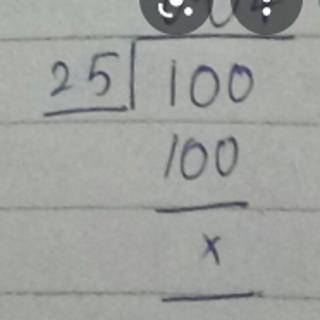 25 100
100
x